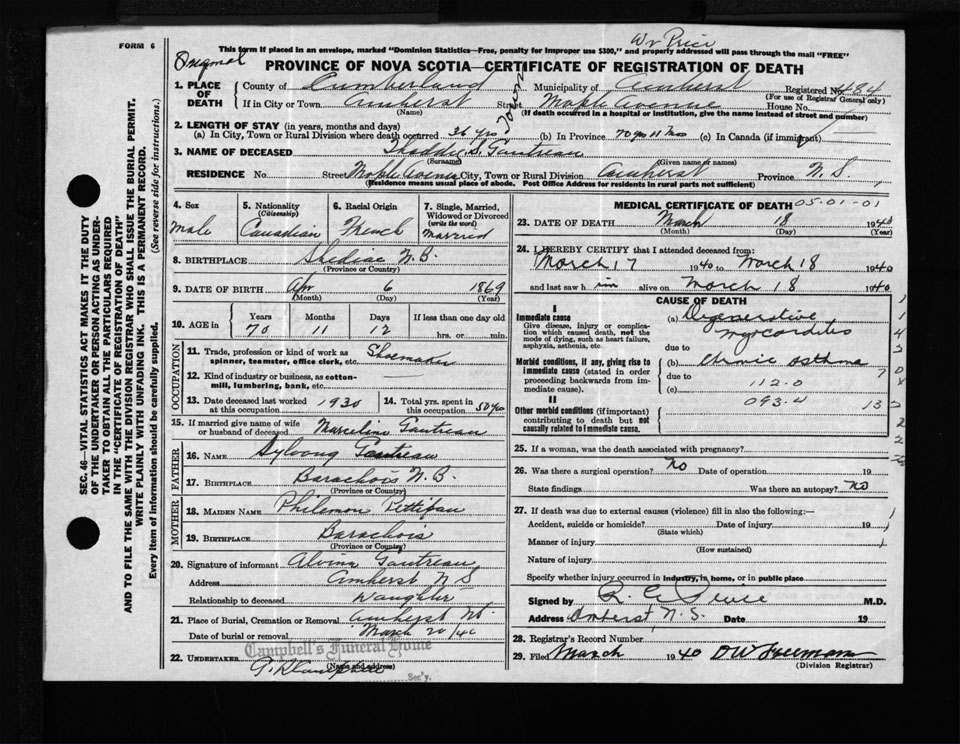 FORM 6
Wr Price
This form if placed in an envelope, marked "Dominion Statistics—Free, penalty for improper use $300," and properly addressed will pass through the mail "FREE"
Original
PROVINCE OF NOVA SCOTIA—CERTIFICATE OF REGISTRATION OF DEATH
1. PLACE OF DEATH County of Cumberland Municipality of Amherst Registered No. 484
(For use of Registrar General only)
If in City or Town Amherst Street Maple Avenue House No.
(Name) (If death occurred in a hospital or institution, give the name instead of street and number)
2. LENGTH OF STAY (in years, months and days)
(a) In City, Town or Rural Division where death occurred 36 yrs (b) In Province 70 yrs 11 Mos (c) In Canada (if immigrant)
3. NAME OF DECEASED Thaddie S. Gautreau
(Surname) (Given name or names)
RESIDENCE No. Street Maple Avenue City, Town or Rural Division Amherst Province N.S.
(Residence means usual place of abode. Post Office Address for residents in rural parts not sufficient)
4. Sex 5. Nationality (Citizenship) 6. Racial Origin 7. Single, Married, Widowed or Divorced (write the word)
Male Canadian French Married
8. BIRTHPLACE Shediac N.B.
(Province or Country)
9. DATE OF BIRTH Apr 6 1869
(Month) (Day) (Year)
10. AGE in Years Months Days If less than one day old
70 11 12 hrs. or min.
OCCUPATION
11. Trade, profession or kind of work as spinner, teamster, office clerk, etc. Shoemaker
12. Kind of industry or business, as cotton-mill, lumbering, bank, etc.
13. Date deceased last worked at this occupation 1930 14. Total yrs. spent in this occupation 50 yrs
15. If married give name of wife or husband of deceased Marceline Gautreau
FATHER
16. Name Gautreau
17. BIRTHPLACE Barachois N.B.
(Province or Country)
MOTHER
18. MAIDEN NAME Philemon
19. BIRTHPLACE Barachois
(Province or Country)
20. Signature of informant Alvina Gautreau
Address Amherst N S
Relationship to deceased Daughter
21. Place of Burial, Cremation or Removal Amherst NS
Date of burial or removal March 20/40
Campbell's Funeral Home
22. UNDERTAKER
(Name and address)
Sec'y.
MEDICAL CERTIFICATE OF DEATH 05-01-01
23. DATE OF DEATH March 18 1940
(Month) (Day) (Year)
24. I HEREBY CERTIFY that I attended deceased from:
March 17 1940 to March 18 1940
and last saw him alive on March 18 1940
CAUSE OF DEATH
I
Immediate cause (a) Degenerative myocarditis
Give disease, injury or complication which caused death, not the mode of dying, such as heart failure, asphyxia, asthenia, etc.
due to
Morbid conditions, if any, giving rise to immediate cause (stated in order proceeding backwards from immediate cause). (b) Chronic asthma
due to
(c) 112.0
093.4
II
Other morbid conditions (if important) contributing to death but not causally related to immediate cause.
25. If a woman, was the death associated with pregnancy?
26. Was there a surgical operation? No Date of operation 19
State findings Was there an autopsy? No
27. If death was due to external causes (violence) fill in also the following:—
Accident, suicide or homicide? Date of injury 19
(State which)
Manner of injury
(How sustained)
Nature of injury
Specify whether injury occurred in industry, in home, or in public place
Signed by M.D.
Address Amherst N.S. Date 19
28. Registrar's Record Number
29. Filed March 1940 D W Freeman
(Division Registrar)
SEC. 46—VITAL STATISTICS ACT MAKES IT THE DUTY
OF THE UNDERTAKER OR PERSON ACTING AS UNDERTAKER TO OBTAIN ALL THE PARTICULARS REQUIRED
IN THE "CERTIFICATE OF REGISTRATION OF DEATH"
AND TO FILE THE SAME WITH THE DIVISION REGISTRAR WHO SHALL ISSUE THE BURIAL PERMIT.
WRITE PLAINLY WITH UNFADING INK. THIS IS A PERMANENT RECORD.
Every item of information should be carefully supplied. (See reverse side for instructions.)